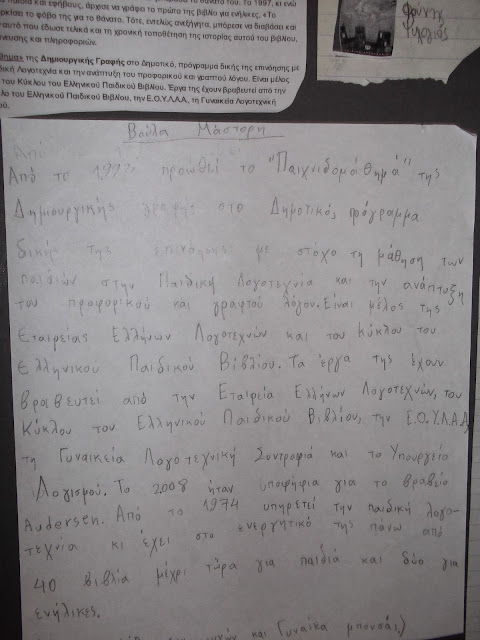 και εφήβους, άρχισε να γράφει το πρώτο της βιβλίο για ενήλικες, «Το
το φόβο της για το θάνατο. Τότε, εντελώς ανεξήγητα, μπόρεσε να διαβάσει και
αυτό που έδωσε τελικά και τη χρονική τοποθέτηση της ιστορίας αυτού του βιβλίου,
και πληροφοριών.
της Δημιουργικής Γραφής στο Δημοτικό, πρόγραμμα δικής της επινόησης με
Λογοτεχνία και την ανάπτυξη του προφορικού και γραπτού λόγου. Είναι μέλος
του Κύκλου του Ελληνικού Παιδικού Βιβλίου. Έργα της έχουν βραβευτεί από την
του Ελληνικού Παιδικού Βιβλίου, την Ε.Ο.Υ.Λ.Α.Α, τη Γυναικεία Λογοτεχνική
Βούλα Μάστορη
Από
Από το 1993 προωθεί το "Παιχνιδομάθημά" της
Δημιουργικής γραφής στο Δημοτικό, πρόγραμμα
δικής της επινόησης με στόχο τη μάθηση των
παιδιών στην Παιδική Λογοτεχνία και την ανάπτυξη
του προφορικού και γραφτού λόγου. Είναι μέλος της
Εταιρείας Ελλήνων Λογοτεχνών και του Κύκλου του
Ελληνικού Παιδικού Βιβλίου. Τα έργα της έχουν
βραβευτεί από την Εταιρεία Ελλήνων Λογοτεχνών, του
Κύκλου του Ελληνικού Παιδικού Βιβλίου, την Ε.Ο.Υ.Λ.Α.Α,
τη Γυναικεία Λογοτεχνική Συντροφιά και το Υπουργείο
Λογισμού. Το 2008 ήταν υποψήφια για το βραβείο
Andersen. Από το 1974 υπηρετεί την παιδική λογο-
τεχνία κι έχει στο ενεργητικό της πάνω από
40 βιβλία μέχρι τώρα για παιδιά και δύο για
ενήλικες.
και Γυναίκα μπονσάι)